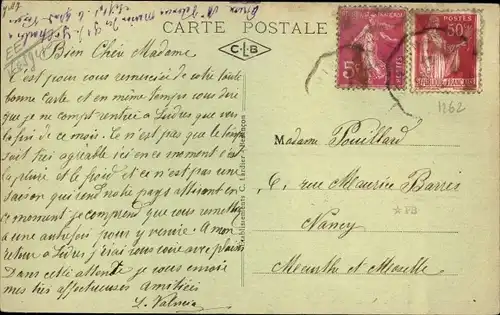 CARTE POSTALE
C L B
Bien Chère Madame
c'est pour vous remercier de votre toute
bonne Carte et en même temps vous dire
que je ne compt rentrée à Ludres que vers
la fin de ce mois. Ce n'est pas que le temps
soit très agréable ici en ce moment c'est
la pluie et le froid et ce n'est pas une
saison qui rend notre pays attirant en
ce moment je comprend que vous remettez
a une autre fois pour y venir. A mon
retour a Ludres j'irai vous voir avec plaisir
Dans cette attente je vous envoie
mes très affectueuses amitiés
L. Valmier
Etablissements C. Lardier - Besançon
POSTES
50c
5c
1262
Madame Pouillard
6, rue Maurice Barrès
☆PB
Nancy
Meurthe et Moselle